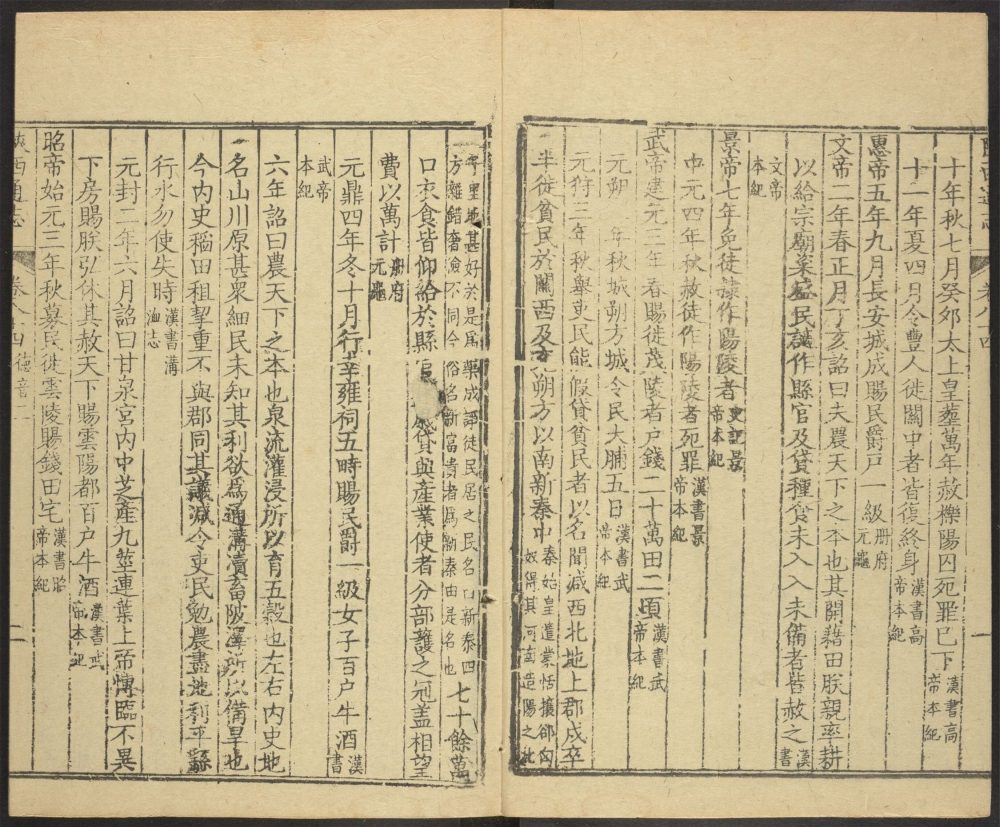 十年秋七月癸卯太上皇塟萬年赦櫟陽囚死罪已下漢書高帝本紀
十一年夏四月令豐人徙關中者皆復終身漢書高帝本紀
惠帝五年九月長安城成賜民爵戸一級册府元龜
文帝二年春正月丁亥詔曰夫農天下之本也其開藉田朕親率耕
以給宗廟粢盛民讁作縣官及貸種食未入入未備者皆赦之漢書
文帝本紀
景帝七年免徒隷作陽陵者史記景帝本紀
中元四年秋赦徒作陽陵者死罪漢書景帝本紀
武帝建元三年春賜徙茂陵者戸錢二十萬田二頃漢書武帝本紀
元朔 年秋城朔方城令民大脯五日漢書武帝本紀
元狩三年秋舉吏民能假貸貧民者以名聞減西北地上郡戍卒
半徙貧民於關西及充朔方以南新秦中秦始皇遣蒙恬攘郤匈奴得其河南造陽之北
千里地甚好於是爲築城郭徙民居之民名曰新秦四方雜錯奢儉不同今俗名新富貴者爲新秦由是名也七十餘萬
口衣食皆仰給於縣官 貸與產業使者分部護之冠盖相望
費以萬計册府元龜
元鼎四年冬十月行幸雍祠五畤賜民爵一級女子百户牛酒漢書
武帝本紀
六年詔曰農天下之本也泉流灌浸所以育五穀也左右内史地
名山川原甚衆細民未知其利欲爲通溝瀆畜陂澤所以備旱也
今内史稻田租挈重不與郡同其議減令吏民勉農盡地利平繇
行水勿使失時漢書溝洫志
元封二年六月詔曰甘泉宮内中芝產九莖連葉上帝愽臨不異
下房賜朕弘休其赦天下賜雲陽都百户牛酒漢書武帝本紀
昭帝始元三年秋募民徙雲陵賜錢田宅漢書昭帝本紀
陜西通志 卷八十四 德音二 二